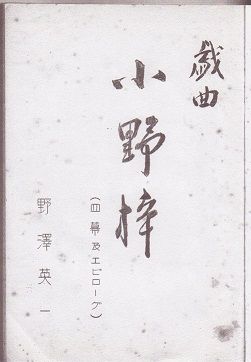 戯曲
小野梓
(四幕及エピローグ)
野澤英一